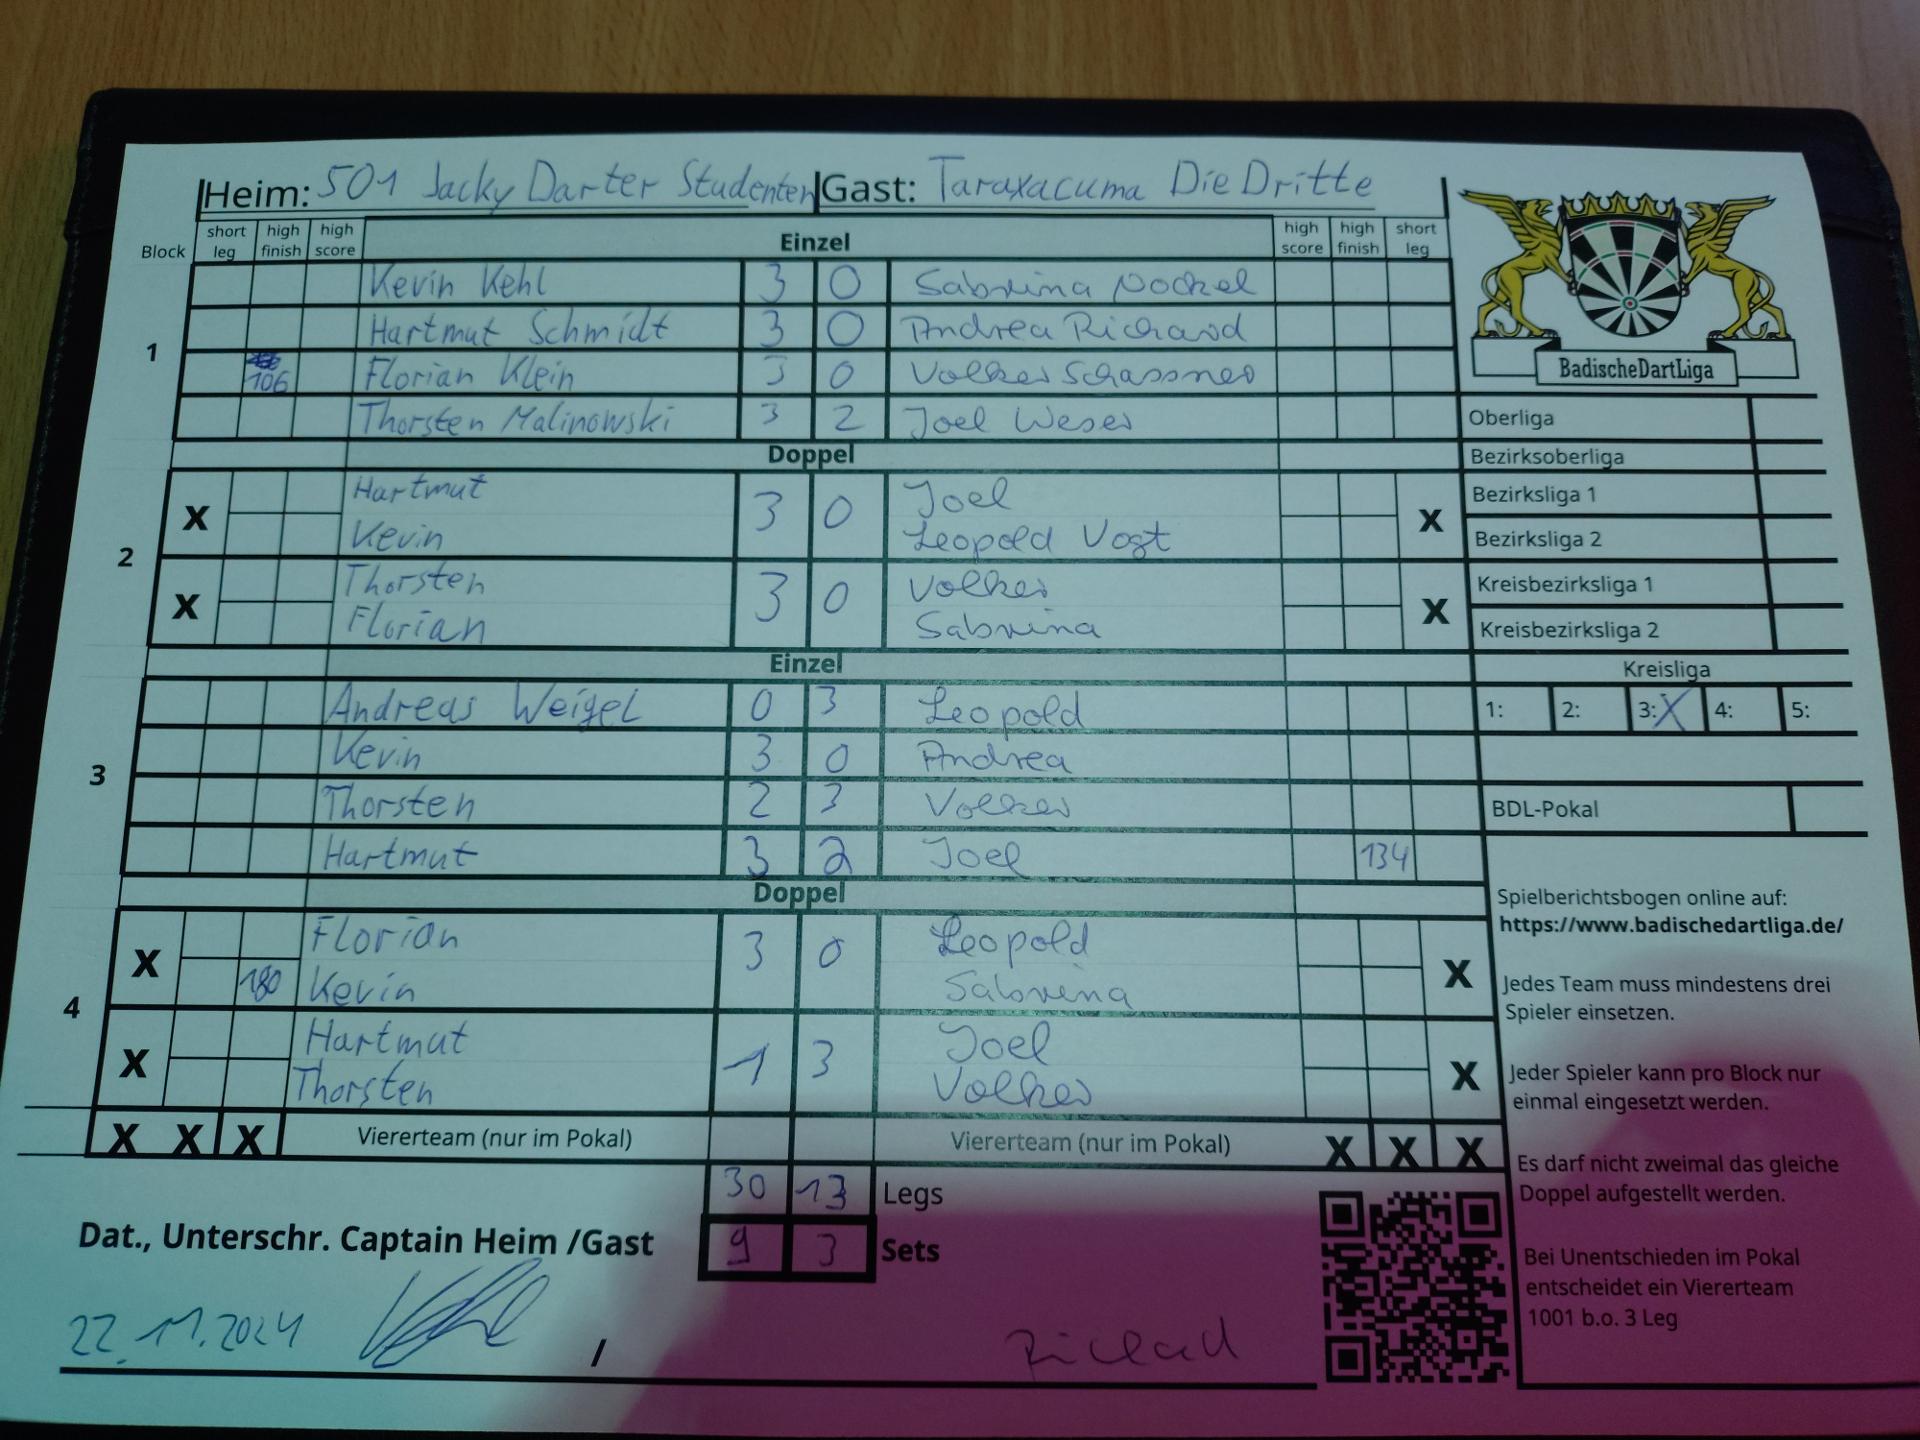 Heim: 501 Jacky Darter Studenten Gast: Taraxacuma Die Dritte
Block short leg high finish high score Einzel high score high finish short leg
1
Kevin Kehl 3 0 Sabrina Nockel
Hartmut Schmidt 3 0 Andrea Richard
106 Florian Klein 3 0 Volker Schassner
Thorsten Malinowski 3 2 Joel Weser
Doppel
2
X Hartmut 3 0 Joel X
Kevin Leopold Vogt
X Thorsten 3 0 Volker X
Florian Sabrina
Einzel
3
Andreas Weigel 0 3 Leopold
Kevin 3 0 Andrea
Thorsten 2 3 Volker
Hartmut 3 2 Joel 134
Doppel
4
X Florian 3 0 Leopold X
180 Kevin Sabrina
X Hartmut 1 3 Joel X
Thorsten Volker
X X X Viererteam (nur im Pokal) Viererteam (nur im Pokal) X X X
30 13 Legs
9 3 Sets
Dat., Unterschr. Captain Heim /Gast
22.11.2024 / Richard
BadischeDartLiga
Oberliga
Bezirksoberliga
Bezirksliga 1
Bezirksliga 2
Kreisbezirksliga 1
Kreisbezirksliga 2
Kreisliga
1: 2: 3: X 4: 5:
BDL-Pokal
Spielberichtsbogen online auf:
https://www.badischedartliga.de/
Jedes Team muss mindestens drei
Spieler einsetzen.
Jeder Spieler kann pro Block nur
einmal eingesetzt werden.
Es darf nicht zweimal das gleiche
Doppel aufgestellt werden.
Bei Unentschieden im Pokal
entscheidet ein Viererteam
1001 b.o. 3 Leg